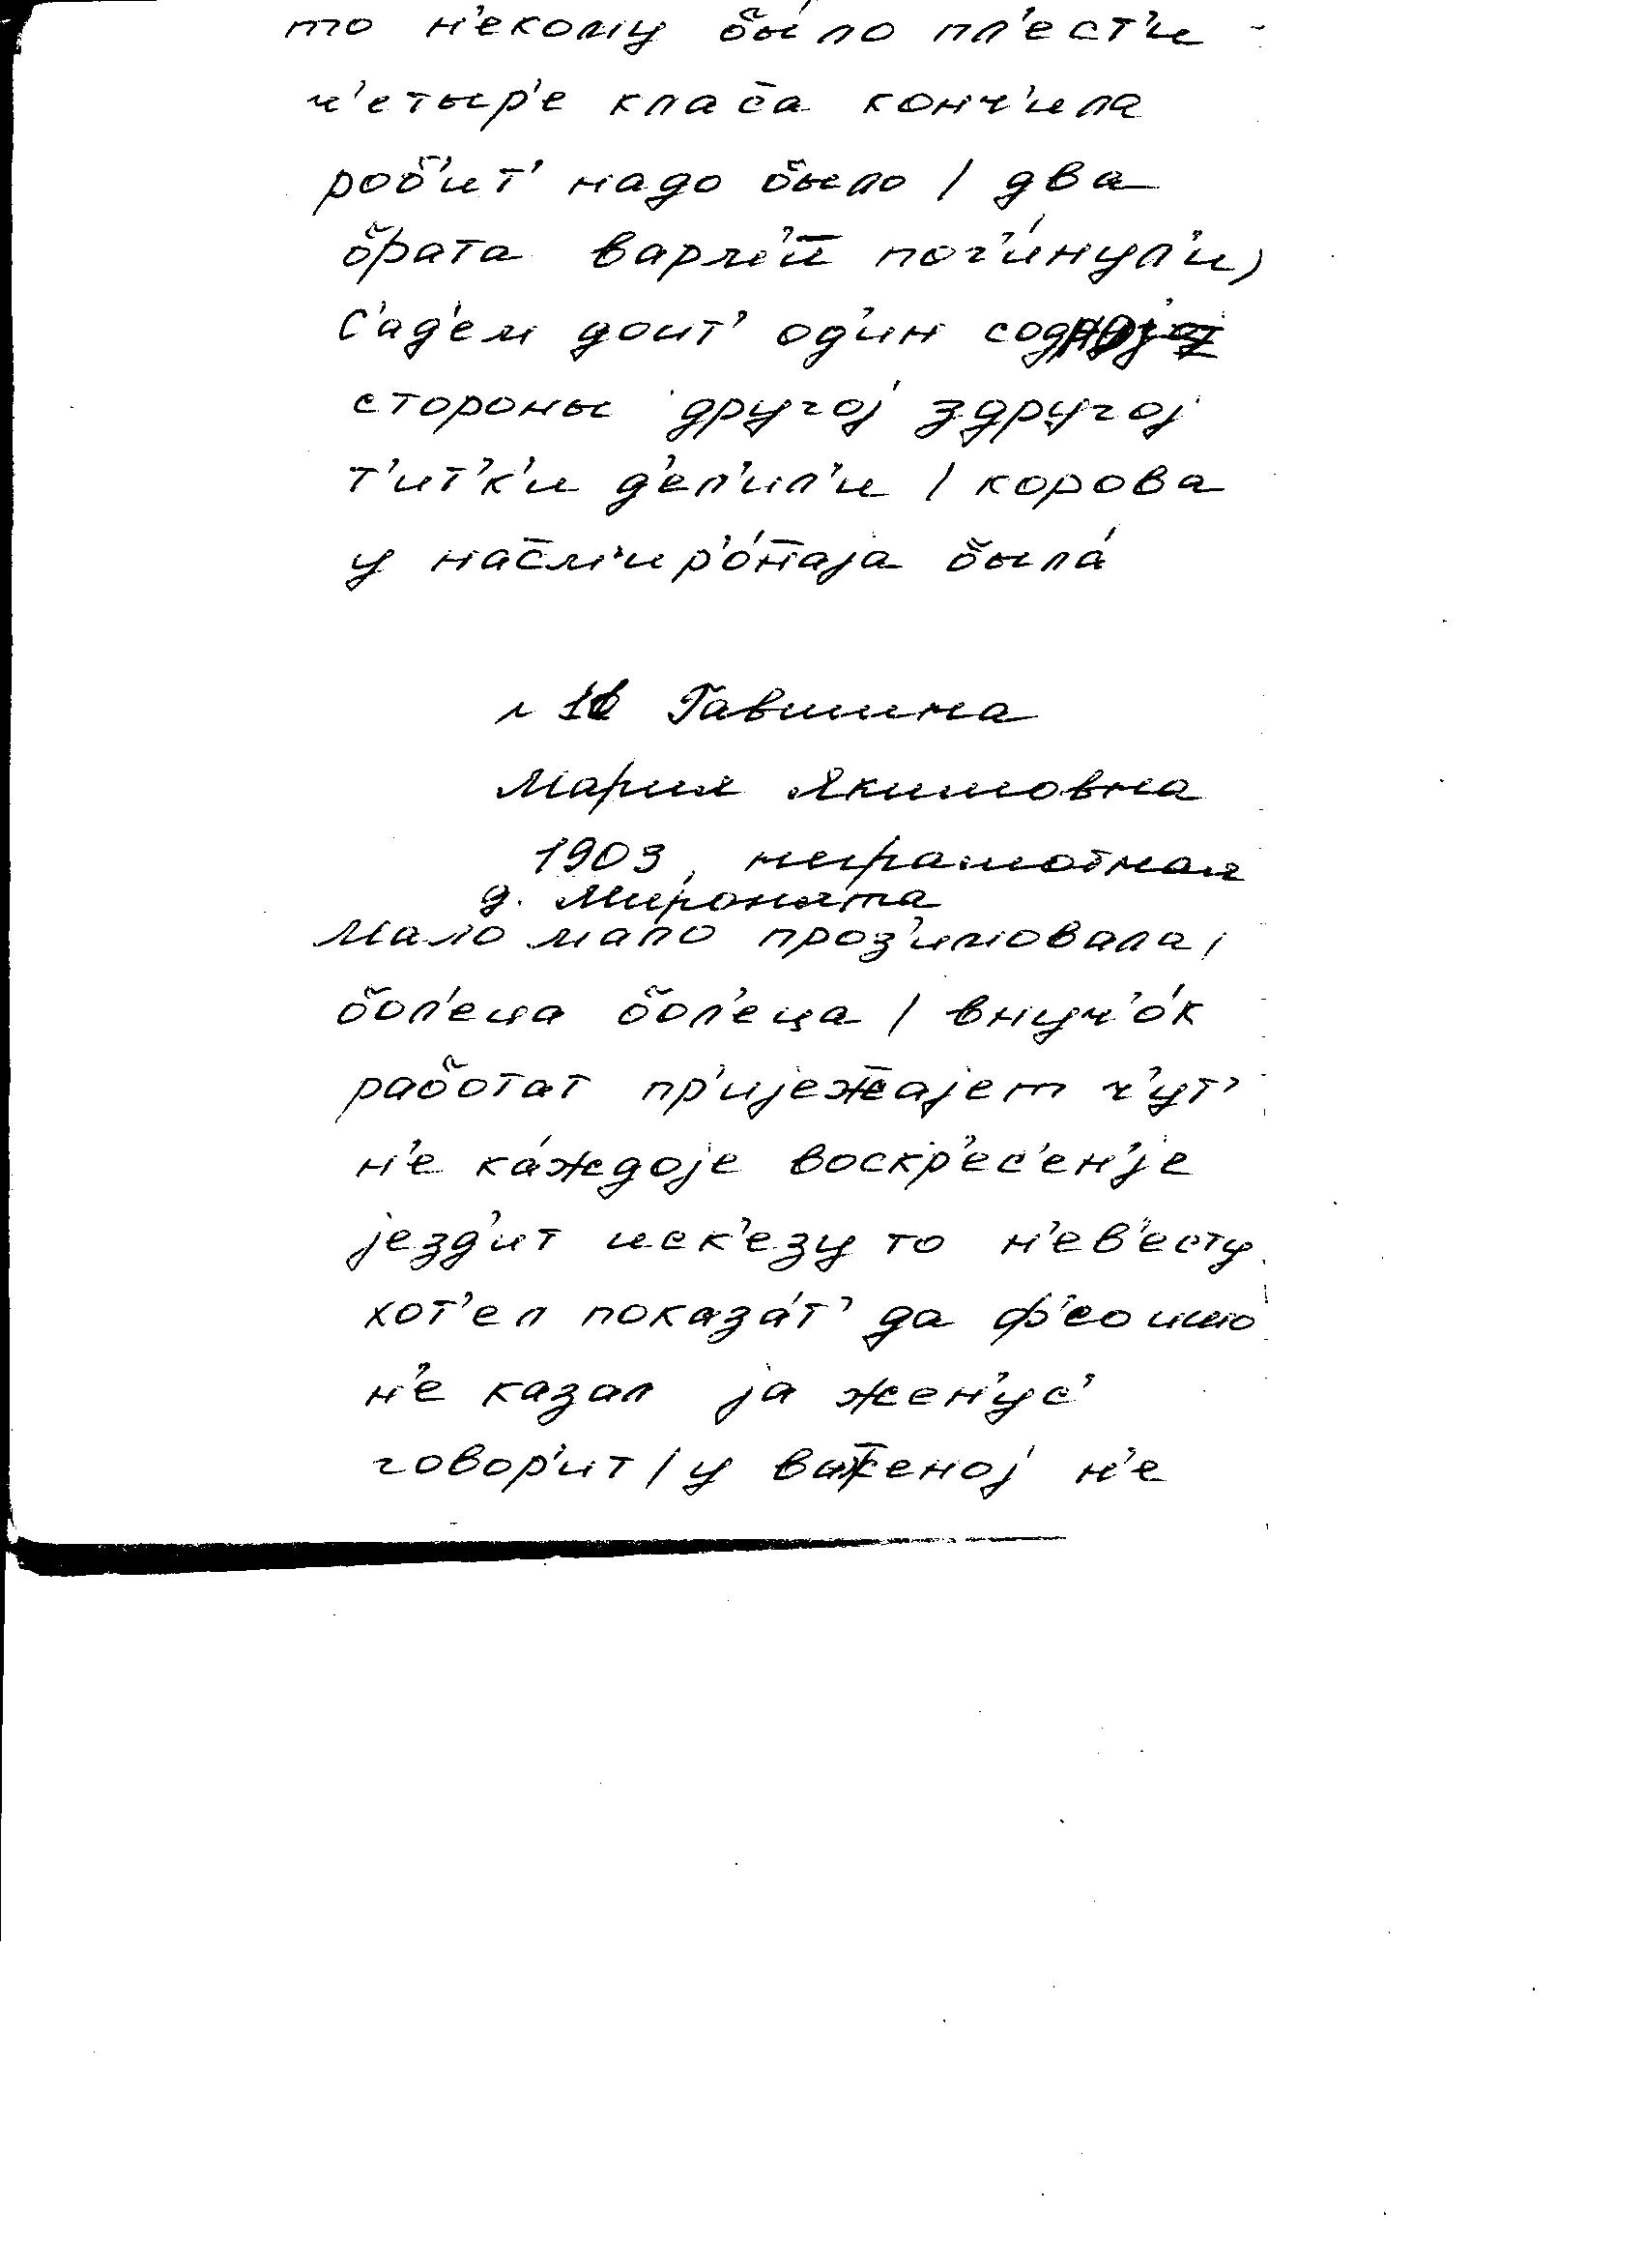 то н'екому бы́ло пл'ест'и
ч'етыр'е кла с̄а конч'ила
роб'ит' надо было / два
брата варм'ӣ пог'и́нул'и,
с'ад'ем доит' од'ин
стороны друго́ј здругој
т'ит'к'и д'ел'ил'и / корова
у нас̄м'ир'о́н̄аја была́
Гавшина
Мария Якимовна
1903, неграмотная
д. Миронята
мало мало проз'имовала,
бол'еца бол'еца / внуч'о́к
работат пр'ијеж̄ајет ч'ут'
н'е ка́ждоје воскр'ес'ен'је
језд'ит иск'езу то н'ев'есту
хот'ел показа́т' да
н'е казал ја жен'ус'
говор'ит / у важ̄еној н'е